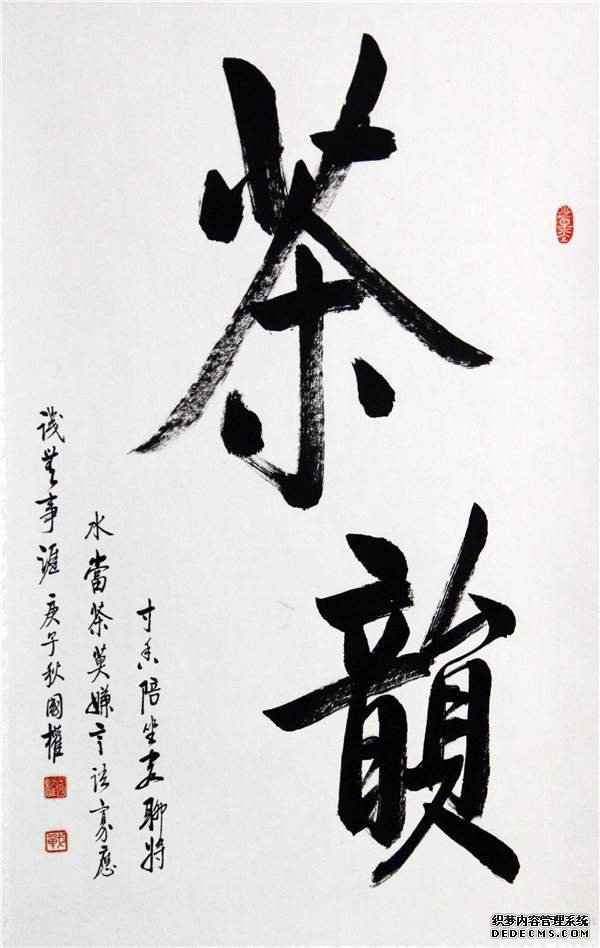 茶韻
寸香陪坐客聊將
水當茶莫嫌言語寡應
識無事涯 庚子秋國權
织梦内容管理系统
DEDECMS.COM